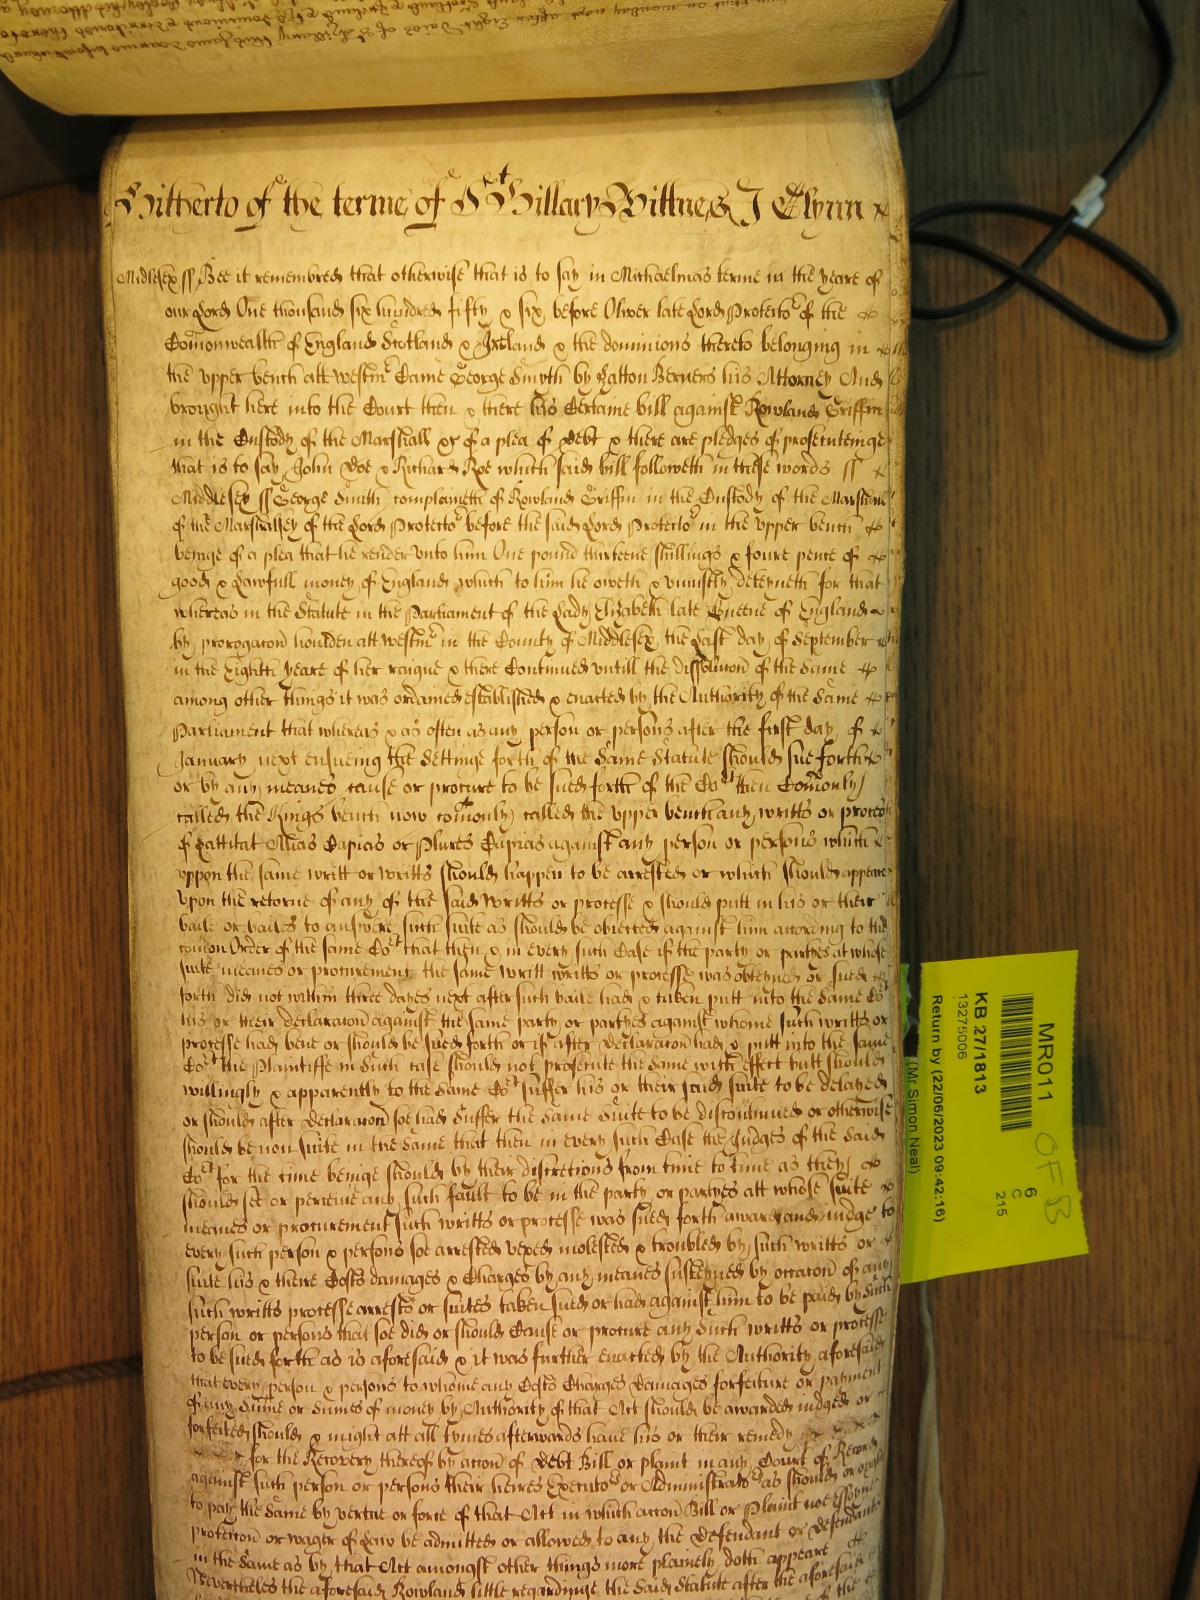 Hitherto of the terme of St Hillary Wittnes J Glynn
Middlesex ss Bee it remembred that otherwise that is to say in Michaelmas terme in the yeare of
our Lord One thousand six hundred fifty & six before Oliver late Lord Protector of the
Comonwealth of England Scotland & Ireland & the dominions thereto belonging in
the upper bench att Westmr Came George Smyth by Hatton Berners his Attorney And
brought here into the Court then & there his Certaine bill against Rowland Griffin
in the Custody of the Marshall &c of a plea of debt & there are pledges of prosecuteinge
that is to say John Doe & Richard Roe which said bill followeth in these words ss
Middlesex ss George Smith complaineth of Rowland Griffin in the Custody of the Marshall
of the Marshalsey of the Lord Protector before the said Lord Protector in the upper bench
beinge of a plea that he render unto him One pound thirteene shillings & foure pence of
good & Lawfull money of England which to him he oweth & uniustly deteyneth for that
whereas in the Statute in the Parliament of the Lady Elizabeth late Queene of England
by prorogacon houlden att Westmr in the County of Middlesex the Last day of September
in the Eighth yeare of her raigne & there Continued untill the dissolucon of the same
among other things it was ordained established & enacted by the Authority of the same
Parliament that whereas & as often as any person or persons after the first day of
January next ensueing the settinge forth of the same Statute should sue forth
or by any meanes cause or procure to be sued forth of the Cort then Comonly
called the Kings bench now comonly called the upper bench any writts or proces
of Lattitat Alias Capias or Plures Capias against any person or persons which
uppon the same writt or writts should happen to be arrested or which should appeare
upon the retorne of any of the said writts or processe & should putt in his or their
baile or bailes to answere such suite as should be obiected against him according to the
comon Order of the same Cort that then & in every such Case if the party or partyes at whose
suite meanes or procurement the same writt writts or processe was obteyned or sued
forth did not within three dayes next after such baile had & taken putt into the same Cort
his or their declaracon against the same party or partyes against whome such writts or
processe had bene or should be sued forth or if after declaracon had & putt into the same
Cort the Plaintiffe in such case should not prosecute the same with effect butt should
willingly & apparently to the same Cort suffer his or their said suite to be delayed
or should after declaracon soe had suffer the same suite to be discontinued or otherwise
should be non suite in the same that then in every such Case the Judges of the said
Cort for the time beinge should by their discretions from time to time as they
should see or perceive any such fault to be in the party or partyes att whose suite
meanes or procurement such writts or processe was sued forth award and iudge to
every such person & persons soe arrested vexed molested & troubled by such writts or
suite his & there Costs damages & Charges by any meanes susteyned by occacon of any
such writts processe arrests or suites taken sued or had against him to be paid by such
person or persons that soe did or should Cause or procure any such writts or processe
to be sued forth as is aforesaid & it was further enacted by the Authority aforesaid
that every person & persons to whome any Costs Charges damages forfeiture or payment
of any sume or sumes of money by Authority of that Act should be awarded iudged or
forfeited should & might att all tymes afterwards have his or their remedy
for the Recovery thereof by accon of debt Bill or plaint in any Court of Record
against such person or persons their heires Executors or Administrators as should or ought
to pay the same by vertue or force of that Act in which accon Bill or Plaint noe Essoyne
proteccon or wager of Law be admitted or allowed to any the Defendant or Defendants
in the same as by that Act amongst other things more plainely doth appeare
Neverthelес the aforesaid Rowland little regardinge the said Statute after the aforesaid
MR011
OFB
KB 27/1813
13275006
6
C
215
Return by (22/06/2023 09:42:16)
(Mr Simon Neal)